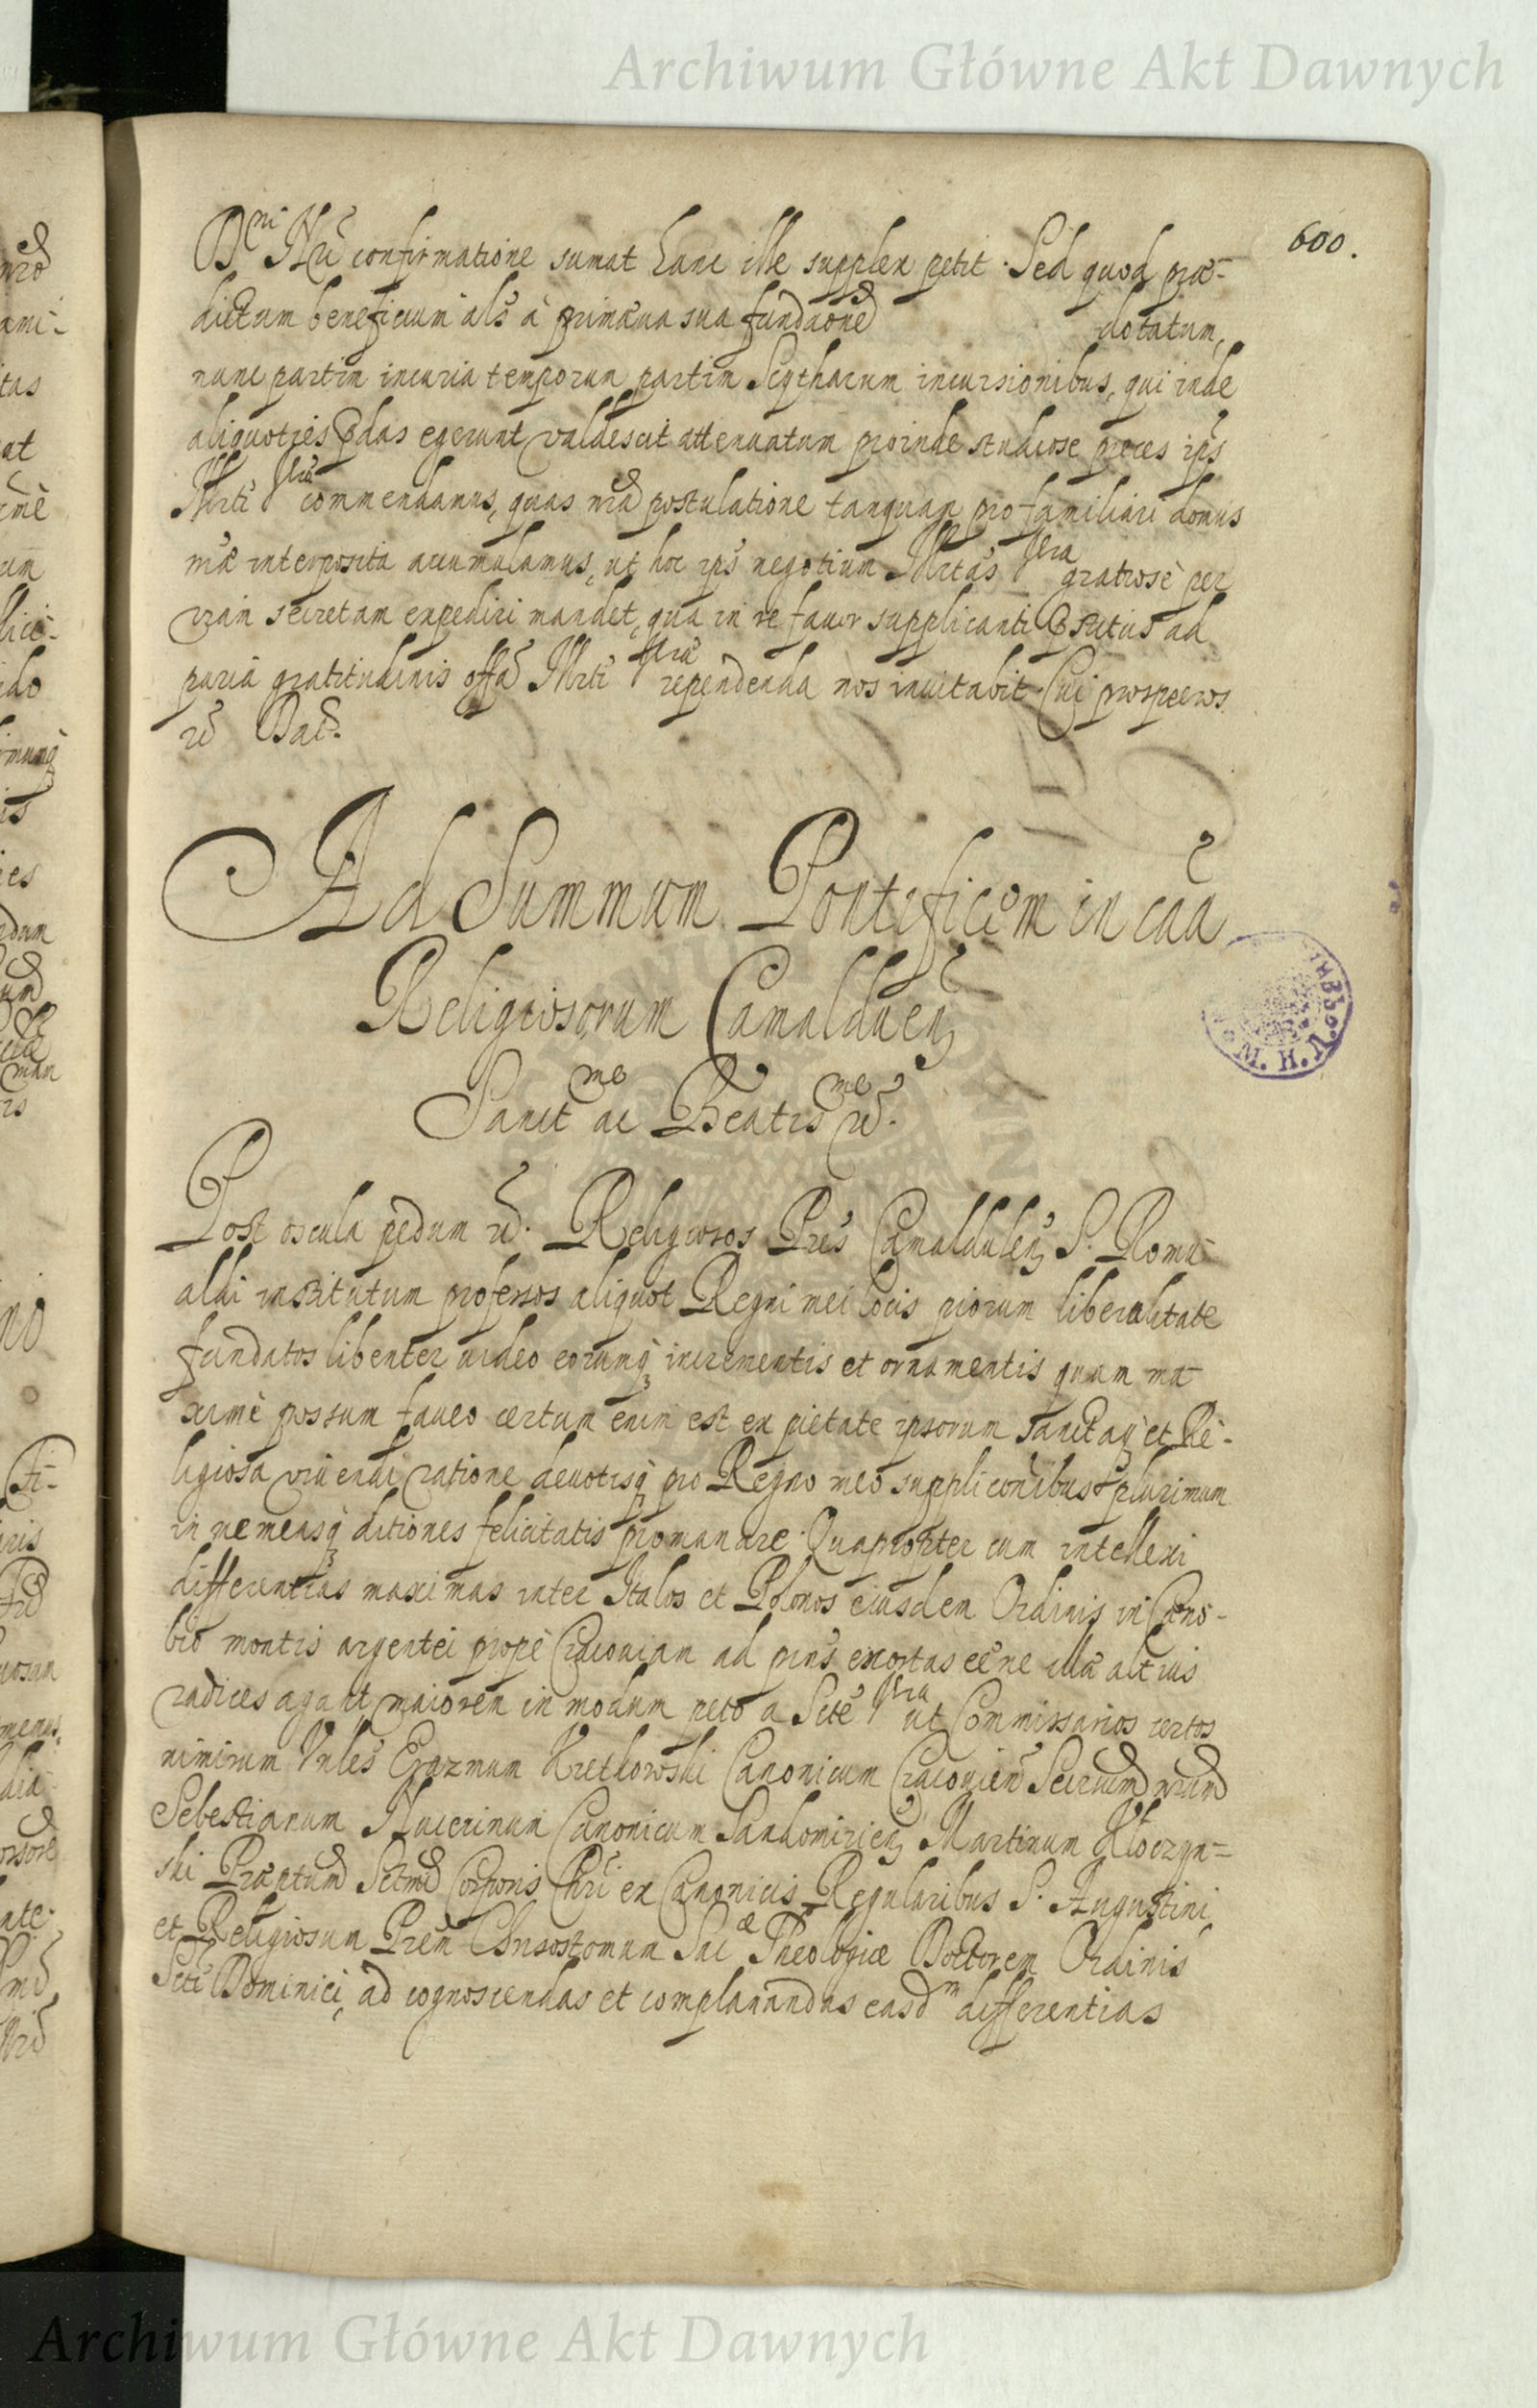 Archiwum Główne Akt Dawnych
600.
Dni Nri confirmatione sumat hanc ille supplex petit. Sed quod præ-
dictum beneficium als à primæua sua fundaone dotatum,
nunc partim incuria temporum partim Scytharum incursionibus, qui inde
aliquoties prædas egerunt valdescit attenuatum proinde studiose preces ips
Illrti Vræ commendamus, quas nra postulatione tanquam pro familiari domus
nræ interposita accumulamus, ut hoc ips negotium Illrtas Vra gratiosè per
viam secretam expediri mandet, qua in re favor supplicanti præstitus ad
paria gratitudinis offa Illrti Vræ rependenda nos inuitabit. Cui prosperos
etc Dat.
Ad Summum Pontificem in caa
Religiosorum Camalduen
Sanctme ac Beatisme etc.
Post oscula pedum etc. Religiosos Pres Camaldulen S. Romu-
aldi institutum professos aliquot Regni mei locis piorum liberalitate
fundatos libenter video eorumq incrementis et ornamentis quam ma-
ximè possum faueo certum enim est ex pietate ipsorum sanctaq et Re-
ligiosa viuendi ratione deuotisq pro Regno meo supplicönibus plurimum
in me measq ditiones felicitatis promanare. Quapropter cum intellexi
differentias maximas inter Italos et Polonos eiusdem Ordinis in Cæno-
bio montis argentei propè Cracouiam ad prns exortas eê ne illæ altius
radices agant maiorem in modum peto a Scte Vra ut Commissarios certos
nimirum Vnles Erazmum Kretkowski Canonicum Cracouien Secrium nrum
Sebestianum Nucerinum Canonicum Sandomirien Martinum Kloczyn-
ski Præptum Sctmi Corporis Chri ex Canonicis Regularibus S. Augustini
et Religiosum Prem Chrisostomum Sac æ Theologiæ Doctorem Ordinis
Scti Dominici, ad cognoscendas et complanandas easdm differentias
M. H. U.
Archiwum Główne Akt Dawnych